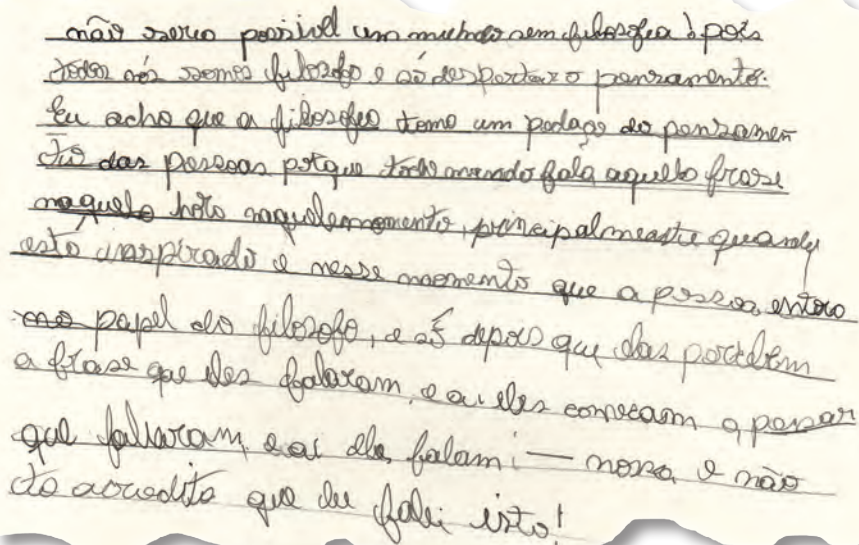 não seria possivel um mundo sem filosofia! pois
todos nós somos filosofo e só despertar o pensamento.
Eu acho que a filosofia toma um pedaço do pensamen
to das pessoas porque todo mundo fala aquela frase
naquela hora naquele momento, principalmente quando
está inspirado é nesse momento que a pessoa entra
no papel do filosofo, e só depois que elas percebem
a frase que eles falaram, e ai eles começam a pensar
que falaram, e ai ela falam: — nossa e não
to acredito que eu falei isto!